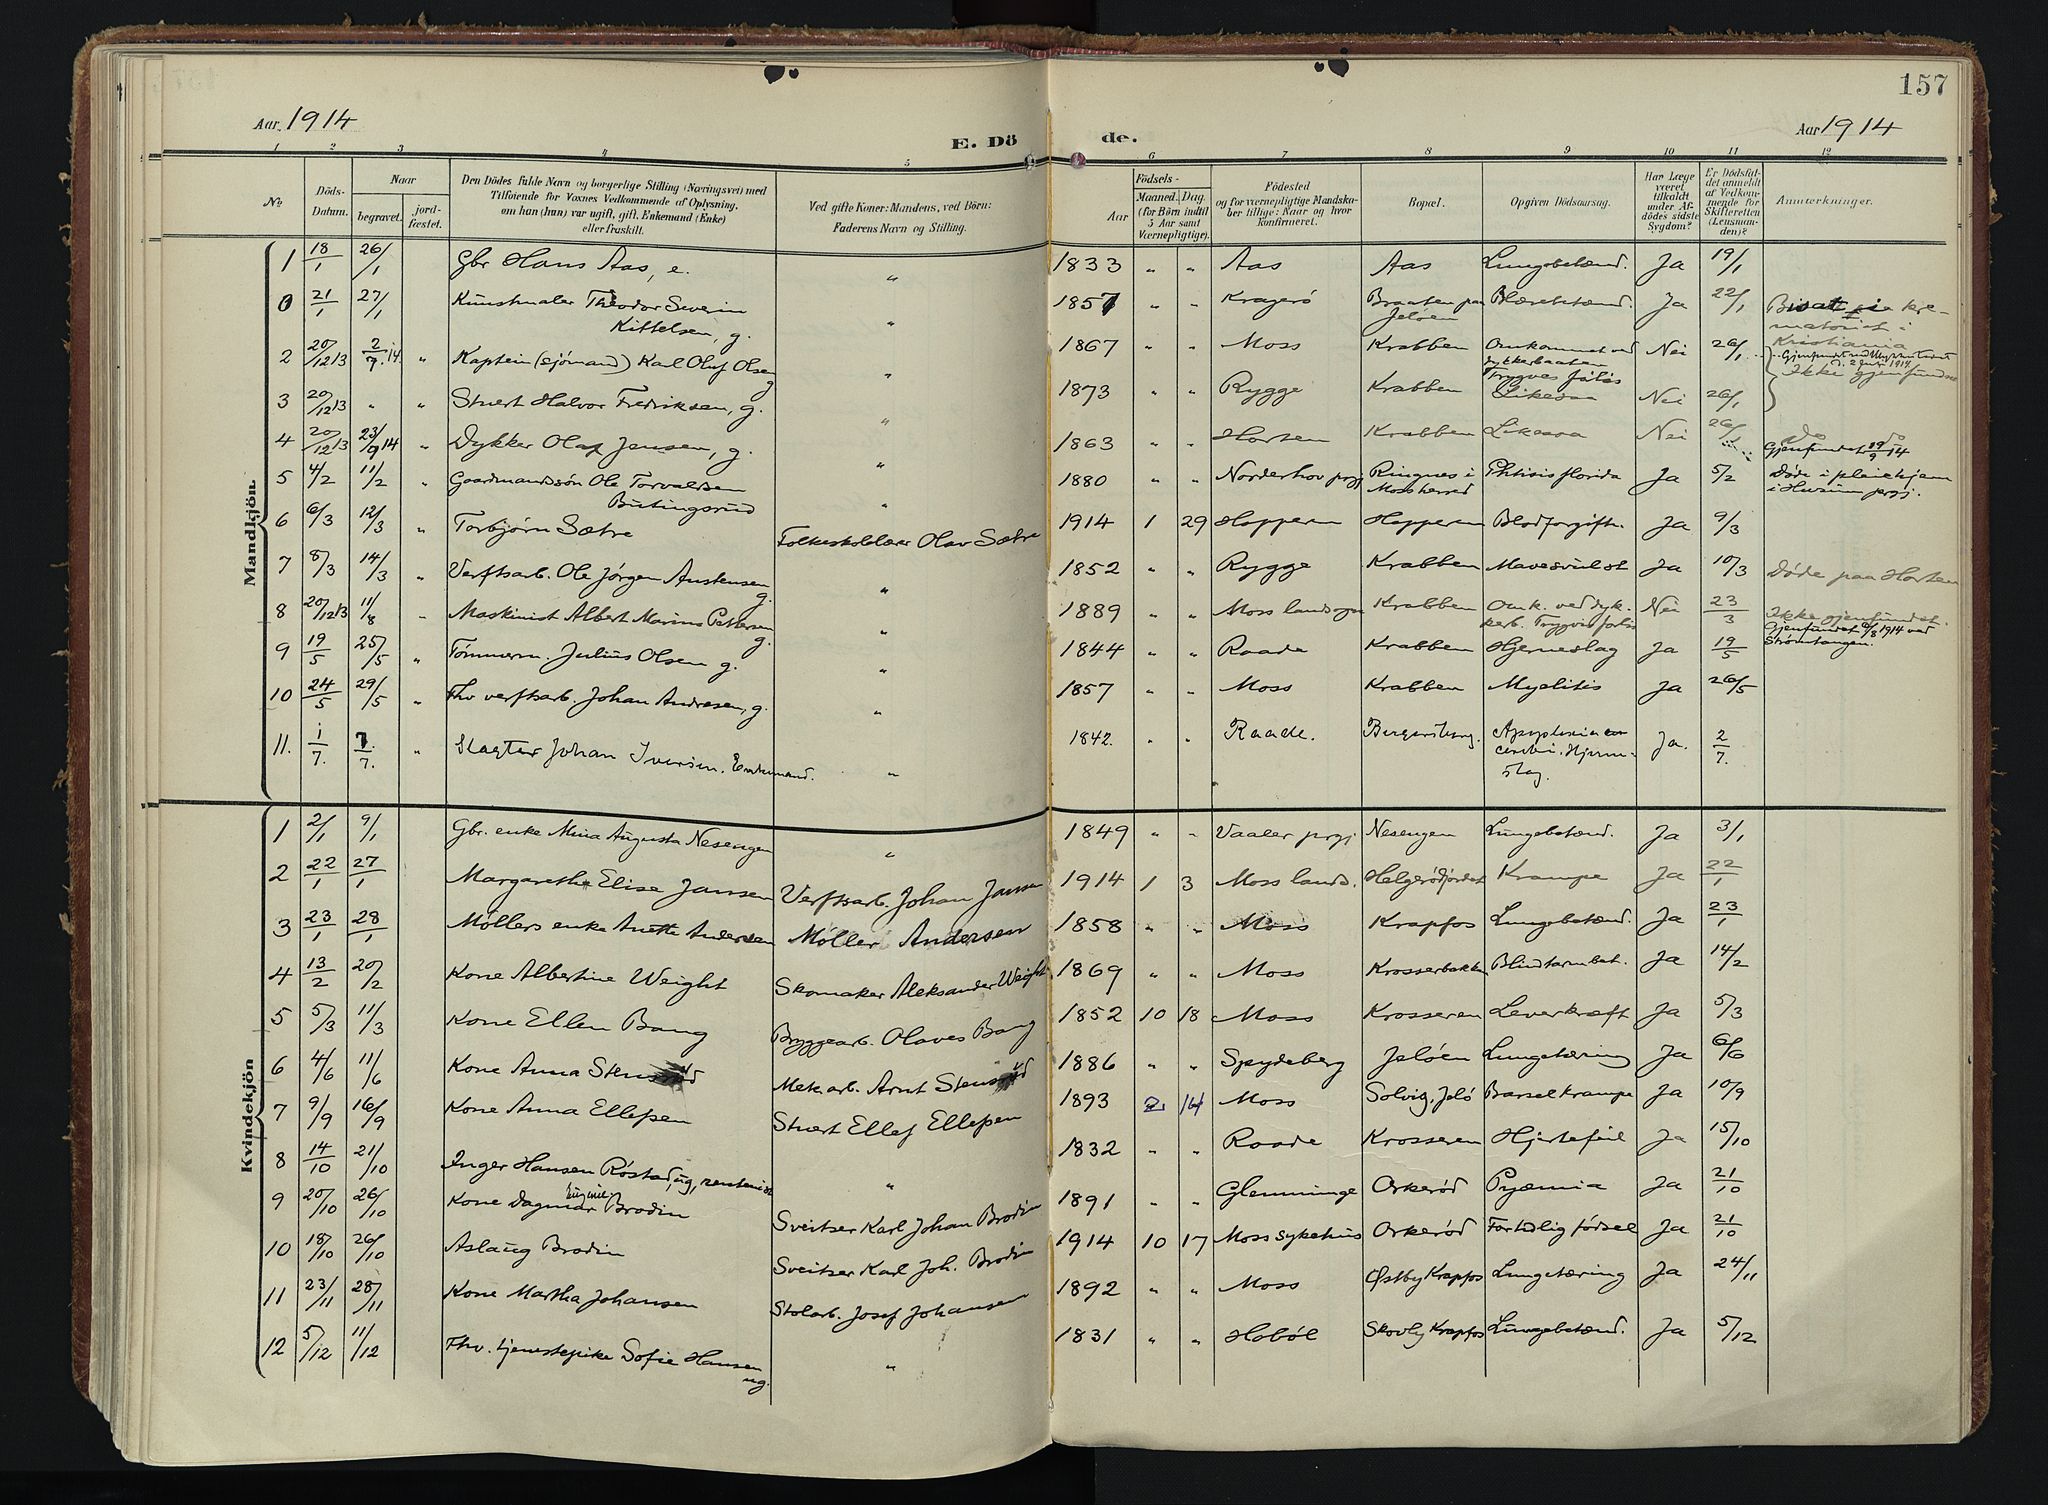 157
Aar 1914
E. Dö
de.
Aar 1914
1 2 3 4 5 6 7 8 9 10 11 12
No
Döds-Datum.
Naar
begravet.
jord-fæstet.
Den Dödes fulde Navn og borgerlige Stilling (Næringsvei) med
Tilföiende for Voxnes Vedkommende af Oplysning,
om han (hun) var ugift, gift, Enkemand (Enke)
eller fraskilt.
Ved gifte Koner: Mandens, ved Börn:
Faderens Navn og Stilling.
Födsels-
Aar
Maaned. Dag.
(for Börn indtil
5 Aar samt
Værnepligtige).
Födested
og for værnepligtige Mandska-
ber tillige: Naar og hvor
konfirmeret.
Bopæl.
Opgiven Dödsaarsag.
Har Læge
været
tilkaldt
under Af-
dödes sidste
Sygdom?
Er Dödsfal-
det anmeldt
af Vedkom-
mende for
Skifteretten
(Lensman-
den)?
Anmærkninger.
Mandkjön.
1 18/1 26/1 Gbr Hans Aas, e. " 1833 " " Aas Aas Lungebetænd. Ja 19/1
0 21/1 27/1 Kunstmaler Theodor Severin Kittelsen, g. " 1857 " " Kragerö Braaten paa Jelöen Blærebetænd. Ja 22/1 Bisat i kre-matoriet i Kristiania
2 20/12 13 2/7 14 " Kaptein (sjömand) Karl Oluf Olsen g " 1867 " " Moss Krabben Omkommet ved dykkerbaaten Trygves forlis Nei 26/1 Gjenfundet d. 2 juli 1914
3 20/12 13 " " Stuert Halvor Fredriksen, g. " 1873 " " Rygge Krabben Likesaa Nei 26/1 Ikke gjenfundet
4 20/12 13 23/9 14 " Dykker Olaf Jensen, g. " 1863 " " Horten Krabben Likesaa Nei 26/1 Do Do Gjenfundet 19/9 14
5 4/2 11/2 " Gaardmandssön Ole Torvaldsen Butingsrud " 1880 " " Norderhov prgj Ringnes i Moss herred Phtisis florida Ja 5/2 Döde i pleiehjem i Hurum prgj.
6 6/3 12/3 " Torbjörn Sætre Folkeskolelærer Olav Sætre 1914 1 29 Hoppern Hoppern Blodforgiftn. Ja 9/3
7 8/3 14/3 " Verftsarb. Ole Jörgen Austensen g. " 1852 " " Rygge Krabben Mavesvulst Ja 10/3 Döde paa Horten
8 20/12 13 11/8 " Maskinist Albert Marius Pettersen g. " 1889 " " Moss landsogn Krabben Omk. ved dyk-kerb. Trygves forlis Nei 23/3 Ikke gjenfundet. Gjenfundet 6/8 1914 ved Strömtangen.
9 19/5 25/5 " Tömmerm. Julius Olsen g. " 1844 " " Raade Krabben Hjerneslag Ja 19/5
10 24/5 29/5 " Fhv verftsarb. Johan Andresen, g. " 1857 " " Moss Krabben Myelitis Ja 26/5
11. 1/7. 7/7. " Slagter Johan Iversen. Enkemand. " 1842. " " Raade. Apoplexia cerebri. Hjerne-slag. Ja. 2/7.
Kvindekjön
1 2/1 9/1 Gbr. enke Mina Augusta Nesengen " 1849 " " Vaaler prgj. Nesengen Lungebetænd. Ja 3/1
2 22/1 27/1 Margarethe Elise Jansen Verftsarb. Johan Jansen 1914 1 3 Moss lands. Helgerödjordet Krampe Ja 22/1
3 23/1 28/1 Möllers enke Anette Andersen Möller Andersen 1858 " " Moss Krapfos Lungebetænd. Ja 23/1
4 13/2 20/2 Kone Albertine Weight Skomaker Aleksander Weight 1869 " " Moss Krosserbakken Blindtarmbet. Ja 14/2
5 5/3 11/3 Kone Ellen Bang Bryggearb. Olaves Bang 1852 10 18 Moss Krosseren Leverkræft Ja 5/3
6 4/6 11/6 Kone Anna Stensrud Mek arb. Arnt Stensrud 1886 " " Spydeberg Jelöen Lungetæring Ja 6/6
7 9/9 16/9 Kone Anna Ellefsen Stuert Ellef Ellefsen 1893 2 14 Moss Solvig, Jelö Barselkrampe Ja 10/9
8 14/10 21/10 Inger Hansen Röstad, ug, rentenist " 1832 " " Raade Krosseren Hjertefeil Ja 15/10
9 20/10 26/10 Kone Dagmar Eugine Brodin Sveitser Karl Johan Brodin 1891 " " Glemminge Orkeröd Pyæmia Ja 21/10
10 18/10 26/10 Aslaug Brodin Sveitser Karl Joh. Brodin 1914 10 17 Moss sykehus Orkeröd Fortidlig födsel Ja 21/10
11 23/11 28/11 Kone Martha Johansen Stolarb. Josef Johansen 1892 " " Moss Østby Krapfos Lungetæring Ja 24/11
12 5/12 11/12 Fhv. tjenestepike Sofie Hansen ug. " 1831 " " Haböl Skovly Krapfos Lungebetænd. Ja 5/12